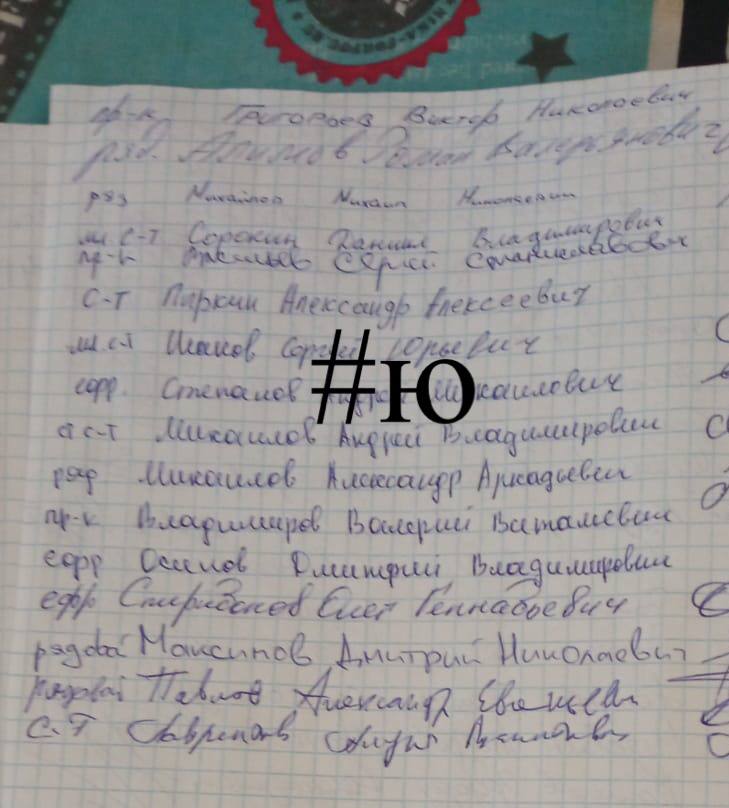 пр-к Григорьев Виктор Николаевич
ряд. Алимов Роман Валерьянович
ряд Михайлов Михаил Николаевич
мл. с-т Сорокин Даниил Владимирович
пр-к Сергей Станиславович
с-т Паркин Александр Алексеевич
мл. с-т Сергей Юрьевич
#ю
ефр. Степанов Андрей Михайлович
ст с-т Михайлов Андрей Владимирович
ряд Михайлов Александр Аркадьевич
пр-к Владимиров Валерий Витальевич
ефр Осипов Дмитрий Владимирович
ефр Спиридонов Олег Геннадьевич
рядовой Максимов Дмитрий Николаевич
рядовой Павлов Александр
с-т